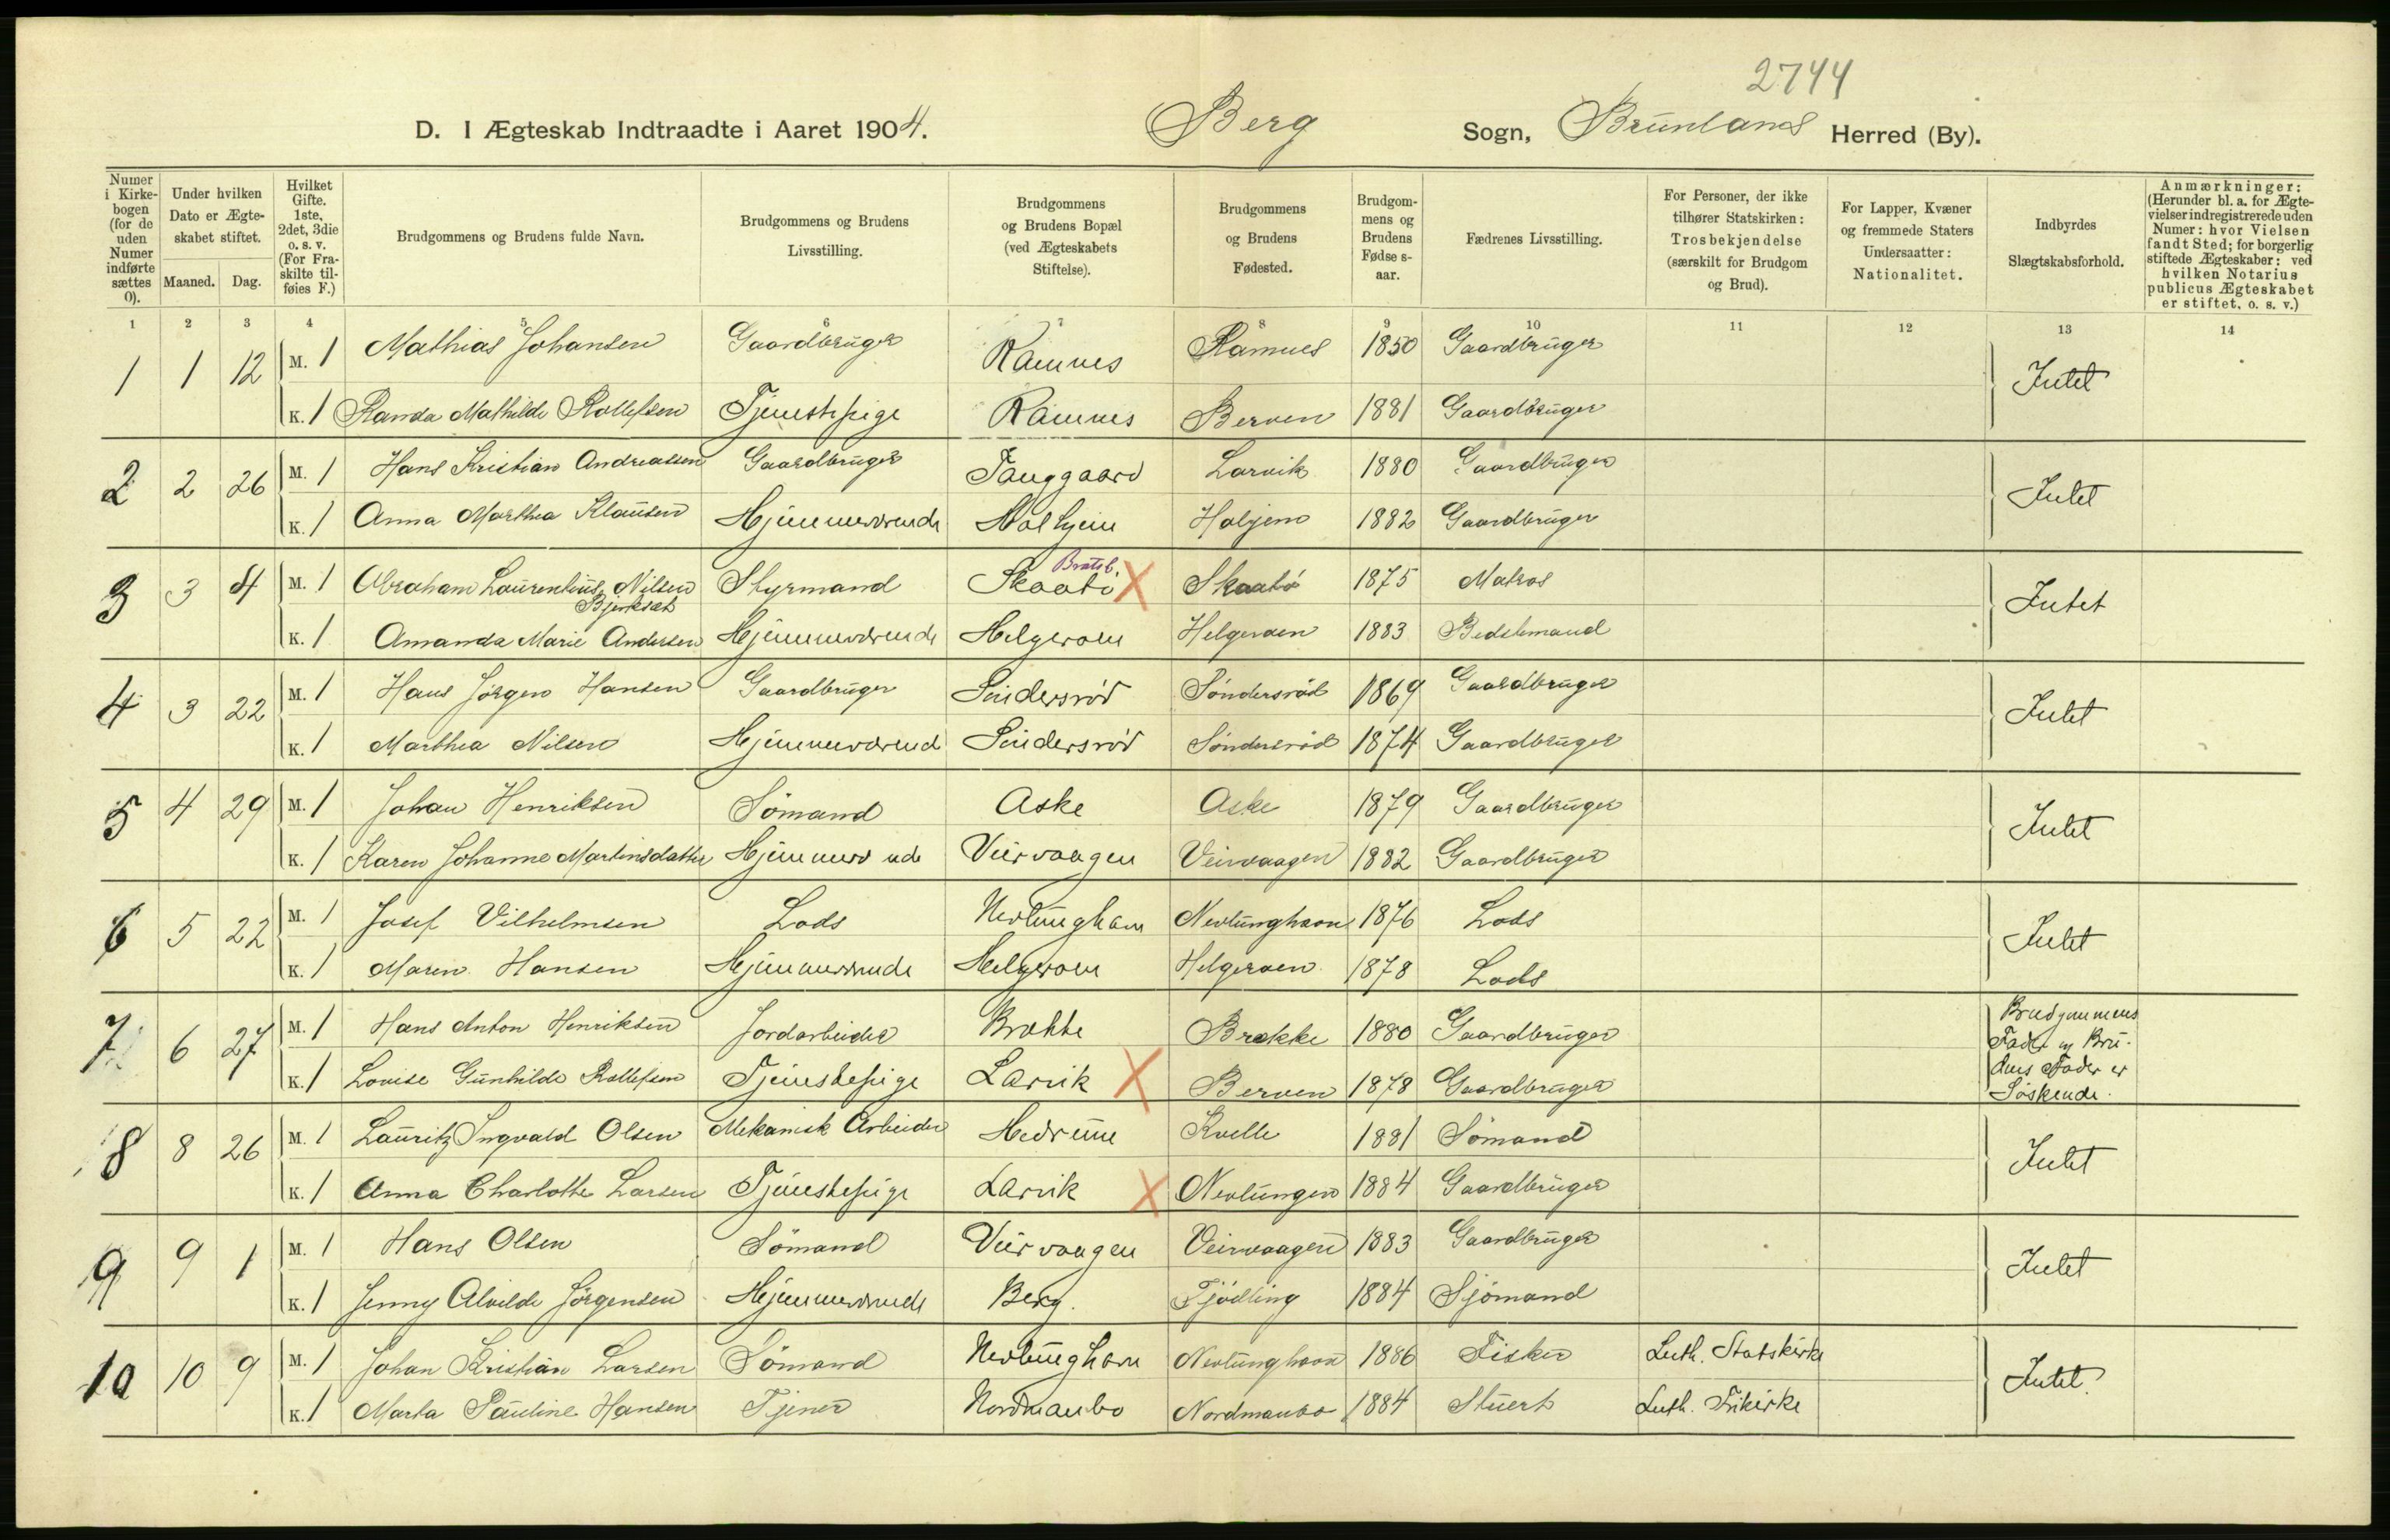 2744
D. I Ægteskab Indtraadte i Aaret 1904. Berg Sogn, Brunlanes Herred (By).
Numer i Kirkebogen (for de uden Numer indførte sættes 0).
Under hvilken Dato er Ægteskabet stiftet.
Maaned. Dag.
Hvilket Gifte. 1ste, 2det, 3die o. s. v. (For Fraskilte tilføies F.)
Brudgommens og Brudens fulde Navn.
Brudgommens og Brudens Livsstilling.
Brudgommens og Brudens Bopæl (ved Ægteskabets Stiftelse).
Brudgommens og Brudens Fødested.
Brudgommens og Brudens Fødselsaar.
Fædrenes Livsstilling.
For Personer, der ikke tilhører Statskirken: Trosbekjendelse (særskilt for Brudgom og Brud).
For Lapper, Kvæner og fremmede Staters Undersaatter: Nationalitet.
Indbyrdes Slægtskabsforhold.
Anmærkninger: (Herunder bl. a. for Ægtevielser indregistrerede uden Numer: hvor Vielsen fandt Sted; for borgerlig stiftede Ægteskaber: ved hvilken Notarius publicus Ægteskabet er stiftet, o. s. v.)
1 2 3 4 5 6 7 8 9 10 11 12 13 14
1 1 12 M. 1 Mathias Johansen Gaardbruger Ramnes Ramnes 1850 Gaardbruger Intet
K. 1 Randa Mathilde Rollefsen Tjenestepige Ramnes Berven 1881 Gaardbruger
2 2 26 M. 1 Hans Kristian Andreassen Gaardbruger Fauggaard Larvik 1880 Gaardbruger Intet
K. 1 Anna Marthea Klausen Hjemmeværende Holhjem Holjem 1882 Gaardbruger
3 3 4 M. 1 Abraham Laurentius Nilsen Bjerksæt Styrmand Skaatö Bratsb. X Skaatö 1875 Matros Intet
K. 1 Amanda Marie Andersen Hjemmeværende Helgeroen Helgeroen 1883 Bedstemand
4 3 22 M. 1 Hans Jörgen Hansen Gaardbruger Söndersröd Söndersröd 1869 Gaardbruger Intet
K. 1 Marthea Nilsen Hjemmeværend Söndersröd Söndersröd 1874 Gaardbruger
5 4 29 M. 1 Johan Henriksen Sömand Aske Aske 1879 Gaardbruger Intet
K. 1 Karen Johanne Martinsdatter Veirvaagen Veirvaagen 1882 Gaardbruger
6 5 22 M. 1 Josef Vilhelmsen Lods Nevlunghavn Nevlunghavn 1876 Lods Intet
K. 1 Maren Hansen Hjemmeværende Helgeroen Helgeroen 1878 Lods
7 6 27 M. 1 Hans Anton Henriksen Jordarbeider Brække Brække 1880 Gaardbruger Brudgommens Fader og Brudens Fader er Söskende.
K. 1 Lovise Gunhilde Rollefsen Tjenestepige Larvik X Berven 1878 Gaardbruger
8 8 26 M. 1 Lauritz Ingvald Olsen Mekanisk Arbeider Hedrum Kvelle 1881 Sömand Intet
K. 1 Anna Charlothe Larsen Tjenestepige Larvik X Nevlungen 1884 Gaardbruger
9 9 1 M. 1 Hans Olsen Sömand Veirvaagen Veirvaagen 1883 Gaardbruger Intet
K. 1 Jenny Alvilde Jörgensen Hjemmeværende Berg. Tjödling 1884 Sjömand
10 10 9 M. 1 Johan Kristian Larsen Sömand Nevlunghavn Nevlunghavn 1886 Fisker Luth. Statskirke Intet.
K. 1 Marta Pauline Hansen Tjener Nordmanbo Nordmanbo 1884 Stuert Luth. Frikirke